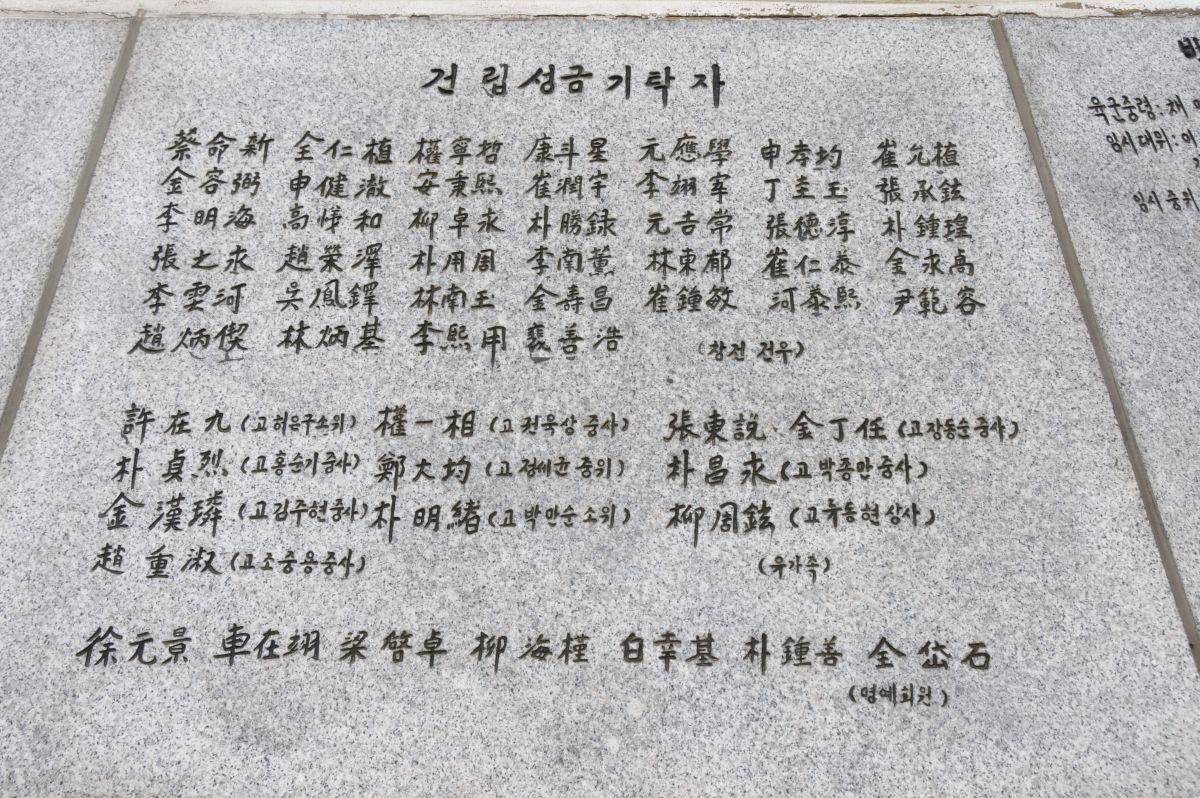 건립성금기탁자
蔡命新 全仁植 權寧哲 康斗星 元應學 申孝均 崔允植
金容弼 申健澈 安秉熙 崔潤宇 李翊宰 丁圭玉 張承鉉
李明海 高悌和 柳卓永 朴勝録 元吉常 張德淳 朴鍾瑝
張之永 趙榮澤 朴用周 李南薰 林東郁 崔仁泰 金永高
李雲河 吳鳳鐸 林南玉 金壽昌 崔鐘敏 河泰熙 尹範容
趙炳偰 林炳基 李熙用 裵善浩 (창전 전우)
許在九 (고허은구소위) 權一相 (고권욱상중사) 張東説·金丁任 (고장동순중사)
朴貞烈 (고홍순기중사) 鄭大均 (고정세균중위) 朴昌永 (고박종만중사)
金漢璘 (고김주현중사) 朴明緖 (고박만순소위) 柳周鉉 (고유동현상사)
趙重淑 (고조중용중사) (유가족)
徐元景 車在翊 梁啓卓 柳海槿 白幸基 朴鍾善 全岱石
(명예회원)
육군중령: 채
임시대위: 이
임시중위